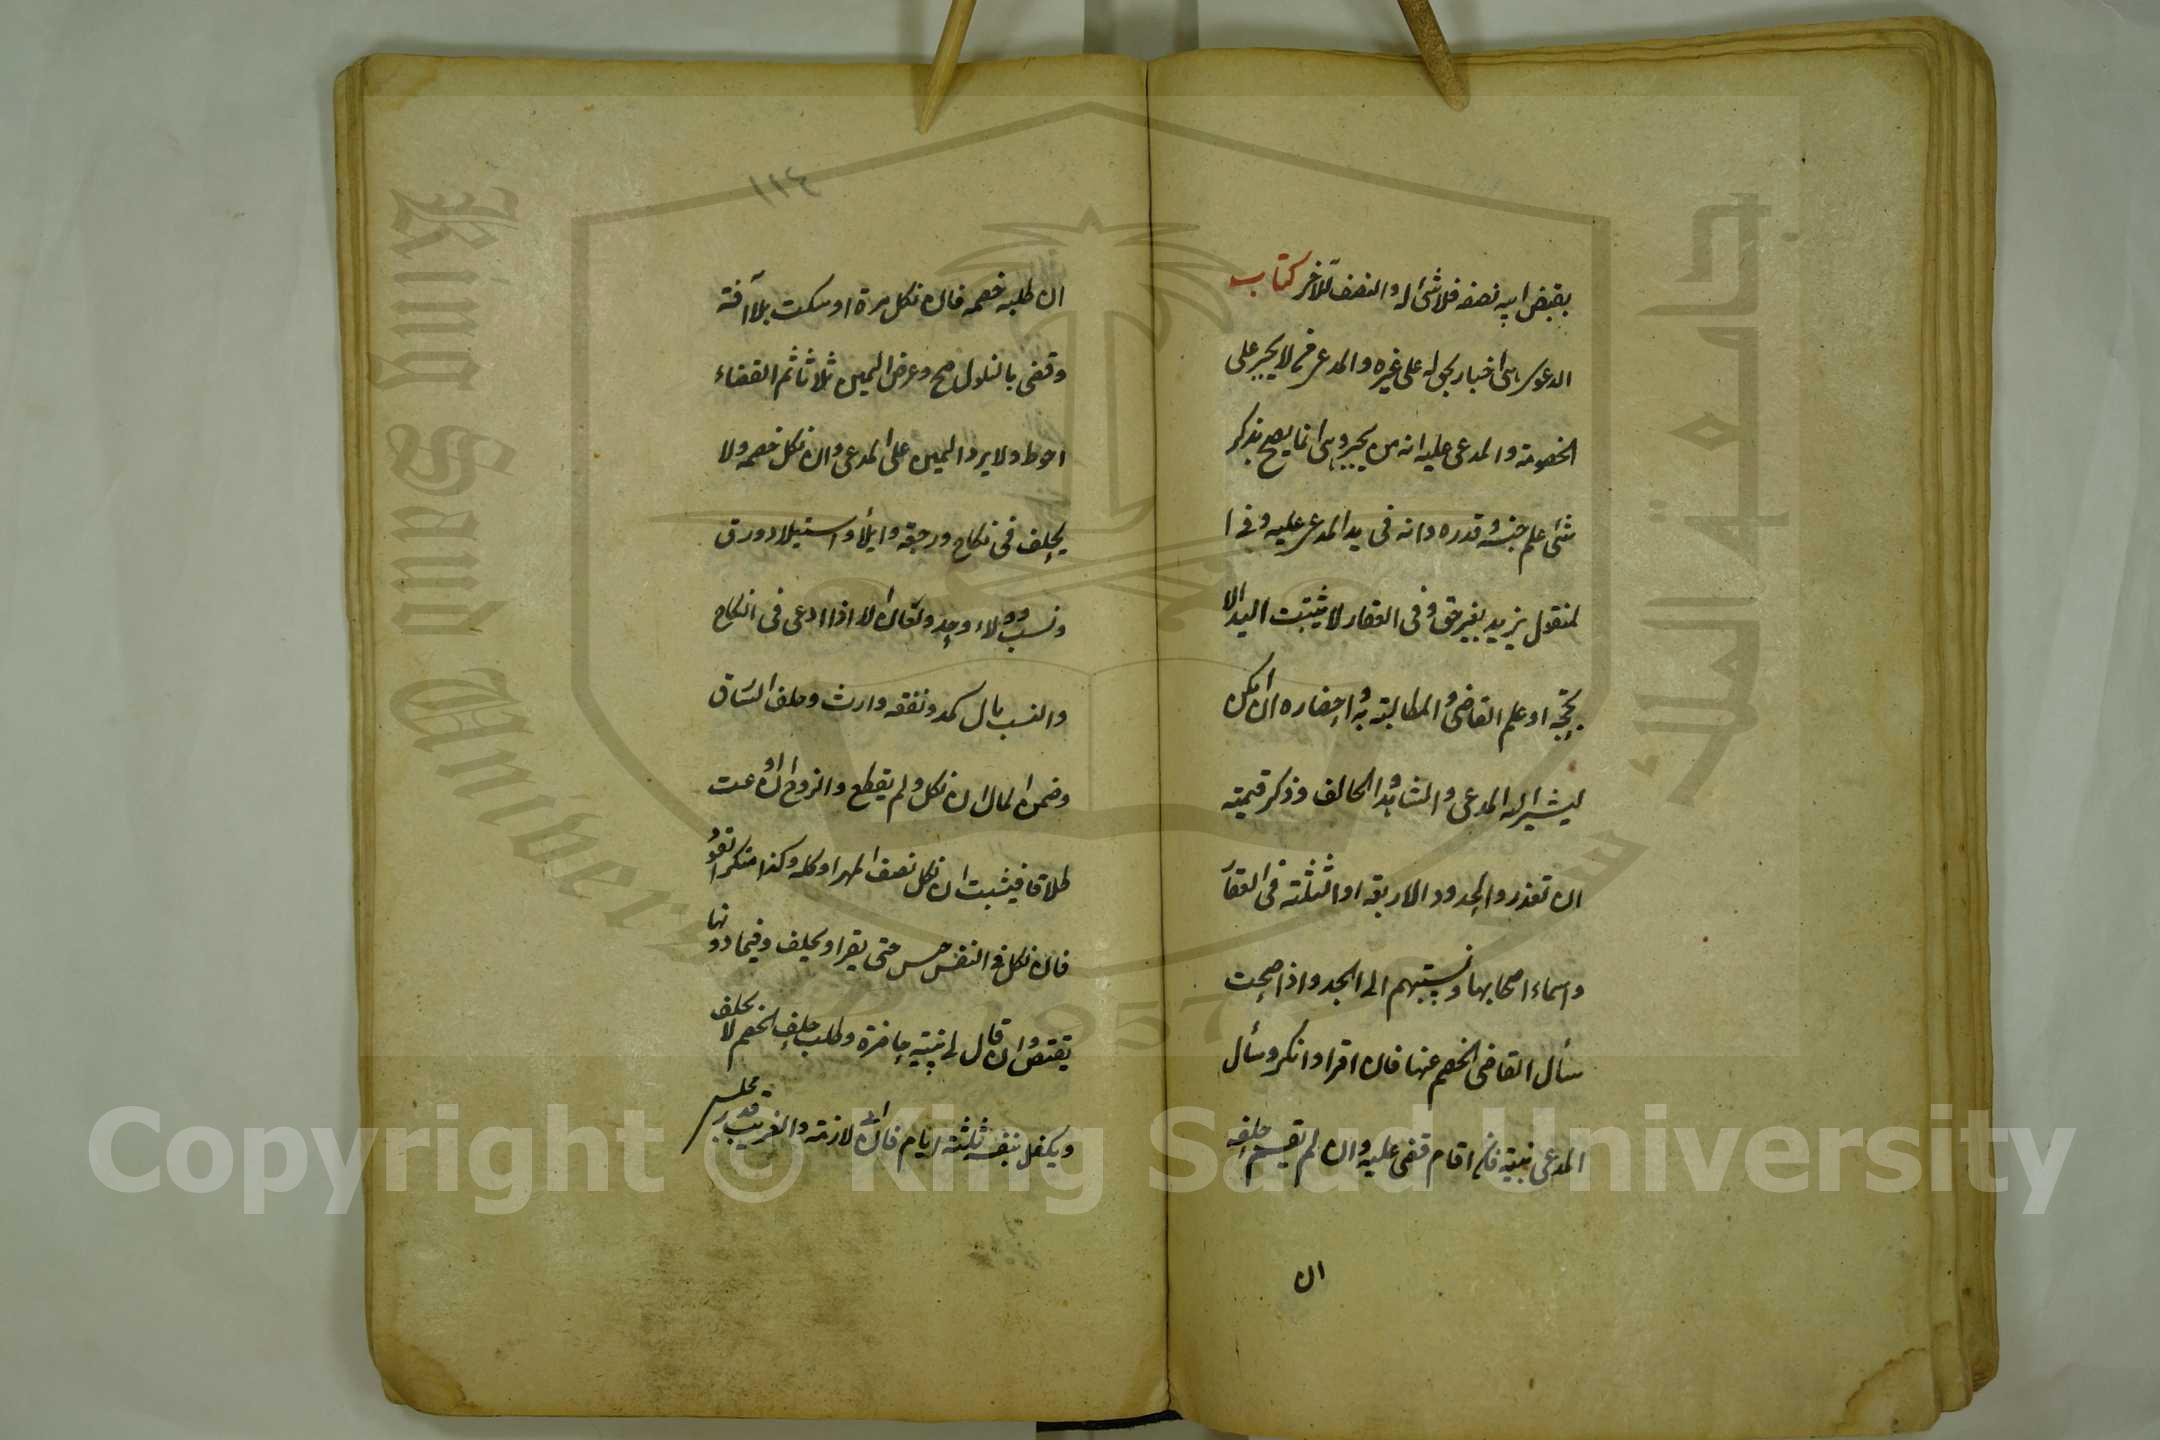 بقبض ابيه نصفه فلا شئ له والنصف للآخر كتاب
الدعوى هى اخبار بحق له على غيره والمدعى من لا يجبر على
الخصومة والمدعى عليه انه من يجبر وهى انما يصح بذكر
شئ علم جنسه وقدره وانه فى يد المدعى عليه وفى ا
لمنقول يزيد بغير حق وفى العقار لا يثبت اليد الا
بحجة او علم القاضى والمطالبة به واحضاره ان امكن
ليشير اليه المدعى والشاهد والحالف وذكر قيمته
ان تعذر والحدود الاربعة او الثلثة فى العقار
واسماء اصحابها ونسبتهم الى الجد واذا صحت
سأل القاضى الخصم عنها فان اقر او انكر وسأل
المدعى بينة فان اقام قضى عليه وان لم يقيم حلفه
ان
١١٤
ان طلبه خصمه فان نكل مرة او سكت بلا آفة
وقضى بالنكول صح وعرض اليمين ثلاثا ثم القضاء
احوط ولا يرد اليمين على المدعى وان نكل خصمه ولا
يحلف فى نكاح ورجعة وايلاء واستيلاد ورق
ونسب وولاء وحد ولعان الا اذا ادعى فى النكاح
والنسب بال كمد ونفقه وارث وحلف السارق
وضمن المال ان نكل ولم يقطع والزوج ان ادعت
طلاقا فيثبت ان نكل نصف المهر او كله وكذا منكر القود
فان نكل فى النفس حبس حتى يقر او يحلف وفيما دونها
يقتص وان قال لى بينة حاضرة وطلب حلف الخصم لا يحلف
ويكفل بنفسه ثلثة ايام فان ابى لازمه والغريب قدر مجلس